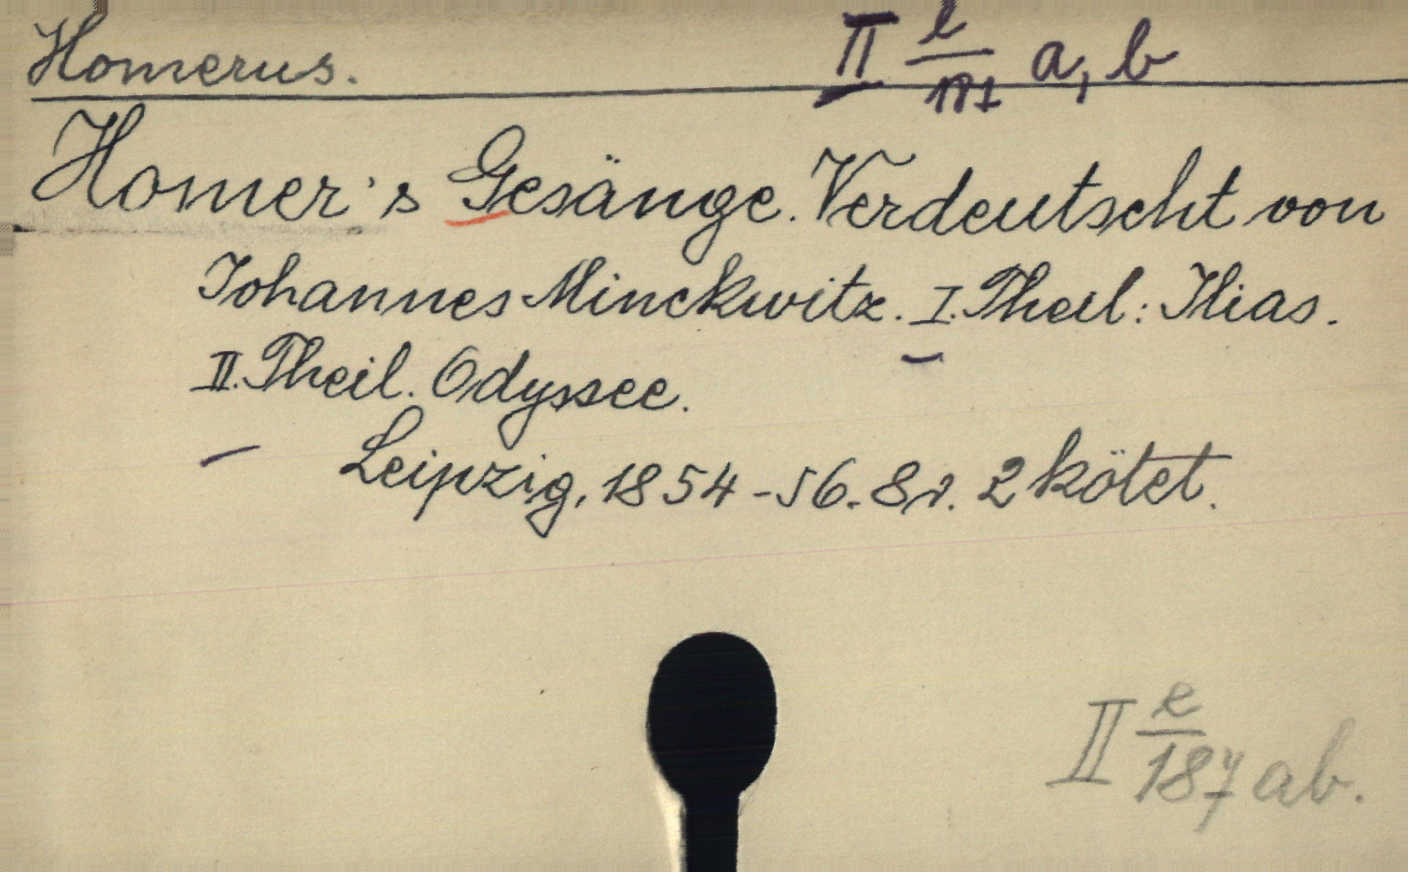 Homerus.
II e/187 a, b
Homer's Gesänge. Verdeutscht von
Johannes Minckwitz. I. Theil: Ilias.
II. Theil. Odyssee.
Leipzig, 1854-56. 8r. 2 kötet.
II e/187 ab.